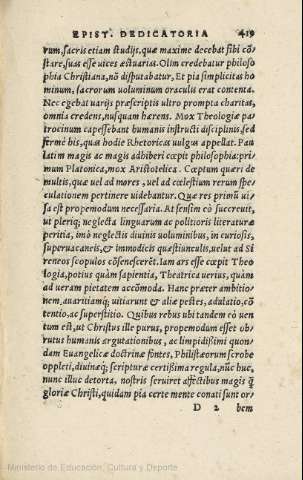 EPIST. DEDICATORIA 419
rum, sacris etiam studijs, quæ maxime decebat sibi cõ
stare, suas esse uices æstuarias. Olim credebatur philoso
phia Christiana, nõ disputabatur, Et pia simplicitas ho
minum, sacrorum uoluminum oraculis erat contenta.
Nec egebat uarijs præscriptis ultro prompta charitas,
omnia credens, nusquam hærens. Mox Theologiæ pa
trocinum capessebant humanis instructi disciplinis, sed
ferme his, quas hodie Rhetoricas uulgus appellat. Pau
latim magis ac magis adhiberi cœpit philosophia: pri
mum Platonica, mox Aristotelica. Cœptum quæri de
multis, quæ uel ad mores, uel ad cœlestium rerum spe
culationem pertinere uidebantur. Quæ res primũ ui
sa est propemodum necessaria. At sensim eò succreuit,
ut pleriq; neglecta linguarum ac politioris literaturæ
peritia, imò neglectis diuinis uoluminibus, in curiosis,
superuacaneis, & immodicis quæstiunculis, uelut ad Si
reneos scopulos cõsenescerẽt. Iam ars esse cœpit Theo
logia, potius quàm sapientia, Theatrica uerius, quàm
ad ueram pietatem accõmoda. Hanc præter ambitio
nem, auaritiamq; uitiarunt & aliæ pestes, adulatio, cõ
tentio, ac superstitio. Quibus rebus ubi tandem eò uen
tum est, ut Christus ille purus, propemodum esset ob
rutus humanis argutationibus, ac limpidissimi quon
dam Euangelicæ doctrinæ fontes, Philistæorum scrobe
oppleti, diuinæq; scripturæ certissima regula, nũc huc,
nunc illuc detorta, nostris seruiret affectibus magis q̃
gloriæ Christi, quidam pia certe mente conati sunt or/
D 2 bem
Ministerio de Educación, Cultura y Deporte